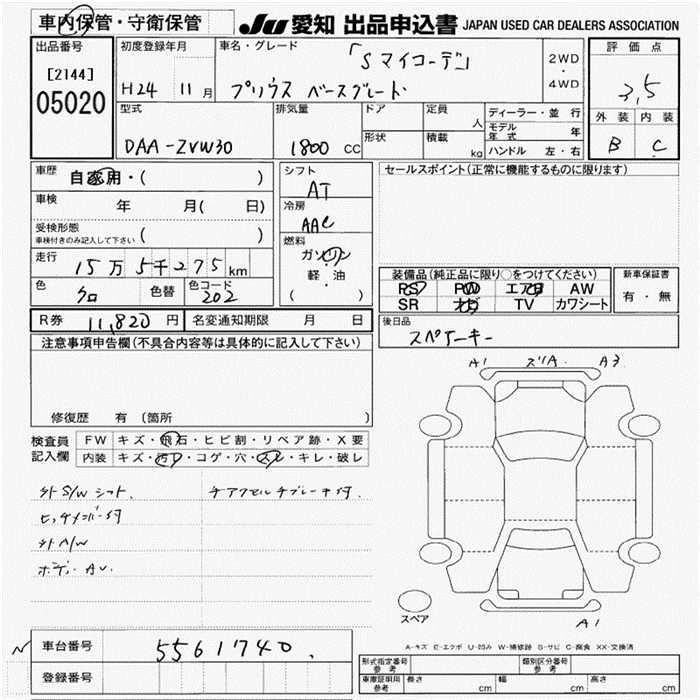 車内保管・守衛保管
JU 愛知 出品申込書 JAPAN USED CAR DEALERS ASSOCIATION
出品番号
[2144]
05020
初度登録年月
H24 11月
車名・グレード
「Sマイコーデ」
プリウス ベースグレード
2WD
・
4WD
評価点
3,5
外装 内装
B C
型式
DAA-ZVW30
排気量
1800 CC
ドア
形状
定員
人
積載
kg
ディーラー・並行
モデル年式 年
ハンドル 左・右
車歴
自家用・( )
車検
年 月( 日)
受検形態
車検付きのみ記入して下さい ( )
走行
15万5千275km
色
クロ
色替
色コード
202
シフト
AT
冷房
AAC
燃料
ガソリン
・
軽・油
( )
セールスポイント(正常に機能するものに限ります)
装備品(純正品に限り○をつけてください)
PS PW エアB AW
SR ナビ TV カワシート
新車保証書
有・無
後日品
スペアーキー
R券 11,820円
名変通知期限 月 日
注意事項申告欄(不具合内容等は具体的に記入して下さい)
修復歴 有(箇所 )
検査員
記入欄
FW キズ・飛石・ヒビ割・リペア跡・X要
内装 キズ・汚レ・コゲ・穴・スレ・キレ・破レ
外S/Wシフト
チアクセルチブレーキ付.
ヒッチメンバー付
外A/W
ボディAU.
A1 スリA. A3
スペア
A1
A-キズ E-エクボ U-凹み W-補修跡 S-サビ C-腐食 XX-交換済
N
車台番号
5561740.
登録番号
形式指定番号
参考
類別区分番号
参考
車庫証明用
参考
長さ cm
幅 cm
高さ cm